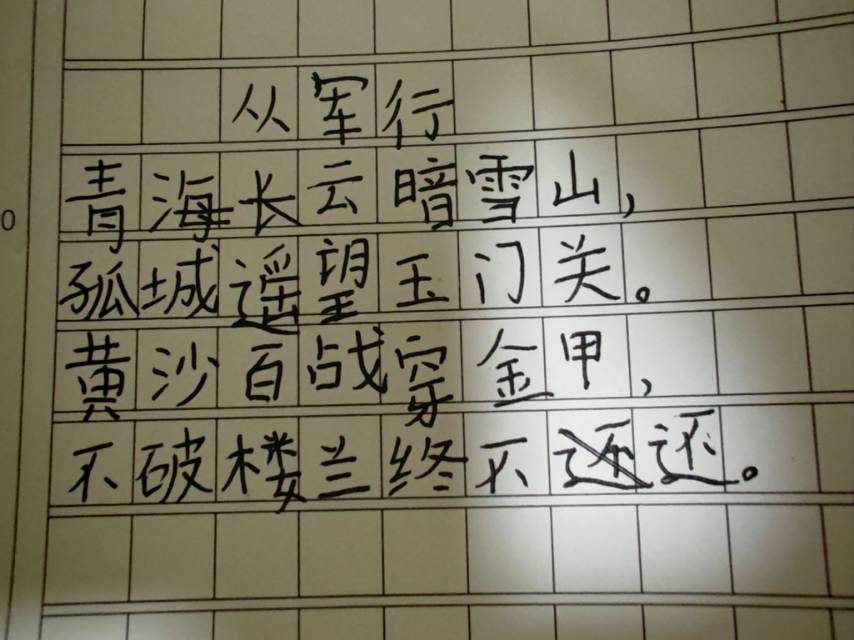 从军行
青海长云暗雪山，
孤城遥望玉门关。
黄沙百战穿金甲，
不破楼兰终不还。
0